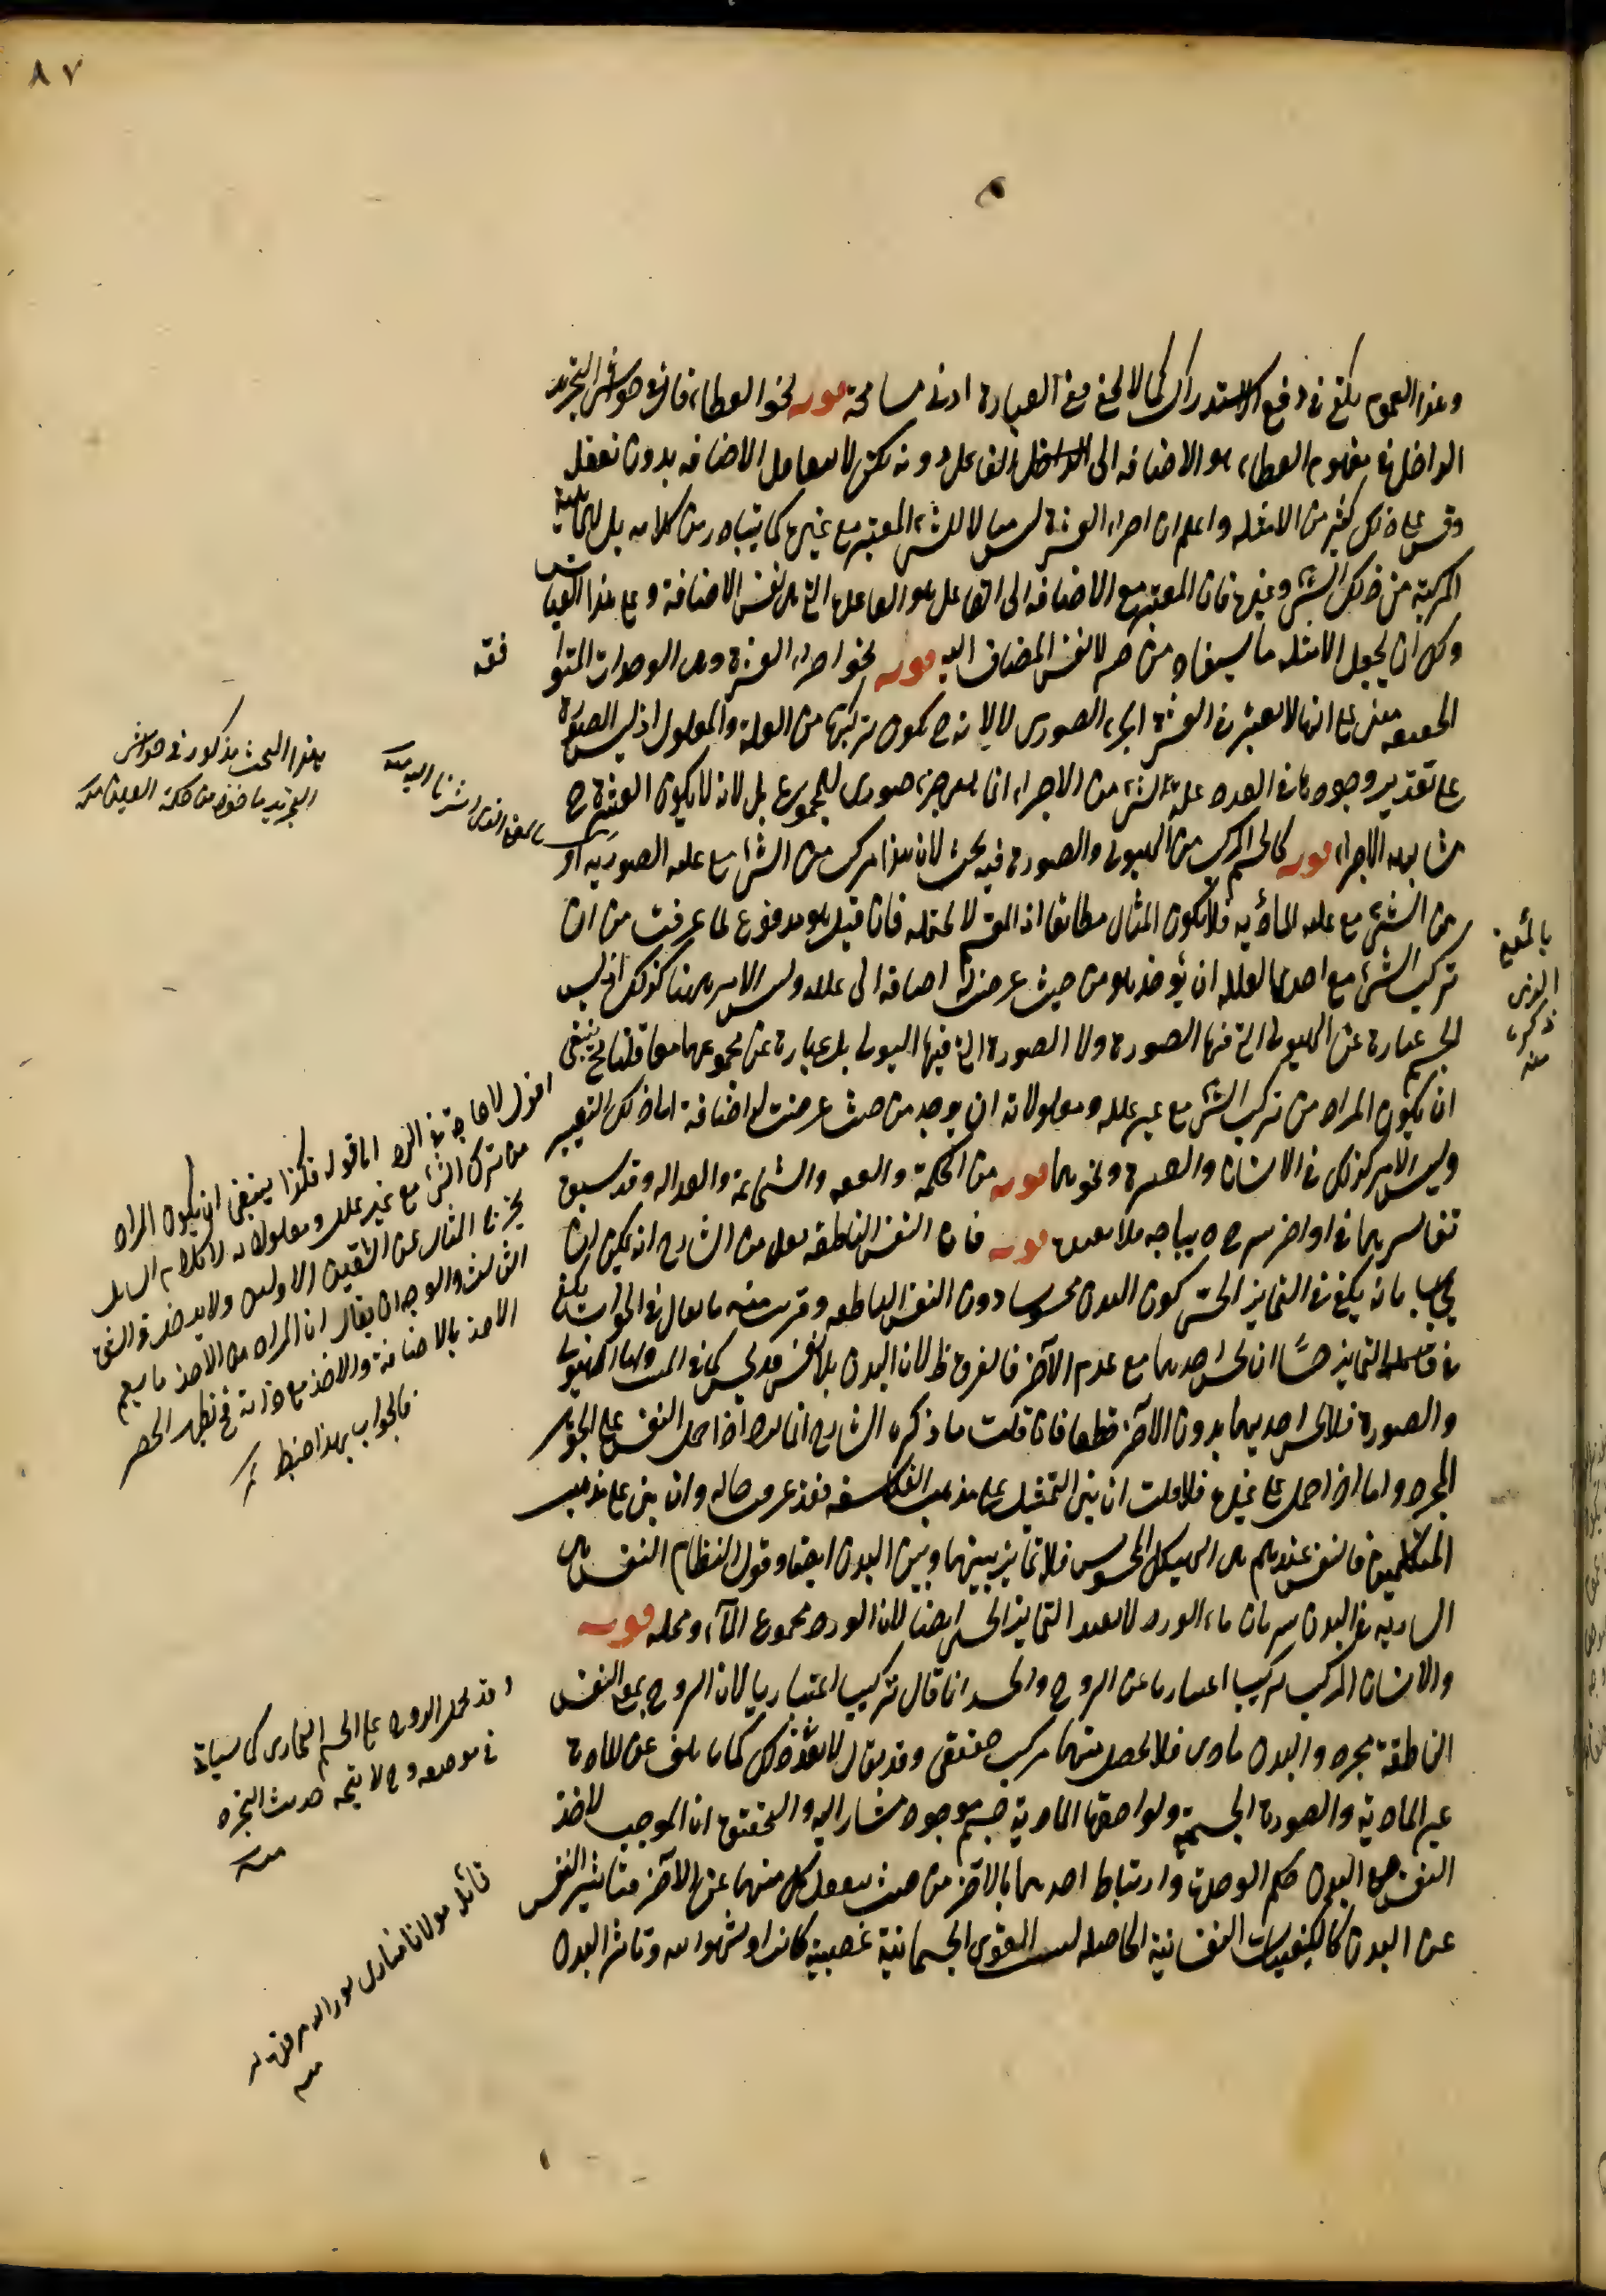 ٨٧
وهذا العموم يكفي في دفع الاستدراك كما لا يخفى ففي العبارة ادنى مسامحة قوله نحو العطاء قال في حواشي التجريد
الداخل في مفهوم العطاء هو الاضافة الى الفاعل دونه لكن لا تتعقل الاضافة بدون تعقل
وقس على ذلك كثير من الامثلة واعلم ان اجزاء العشرة ليس مثالا للشيء المعتبر مع غيره كما يتبادر من كلامه بل للماهية
المركبة من ذلك الشيء وغيره فان المعتبر مع الاضافة الى الفاعل هو الفاعل التي هي نفس الاضافة وعلى هذا القياس
ولك ان تجعل الامثلة ما يستفاد من لا نفس المضاف اليه قوله نحو اجزاء العشرة وهي الوحدات المتوا
فقه
الحقيقة مبني على انها لا يعتبر في العشرة الجزء الصوري لا لانه ح يكون تركبها من العلة والمعلول اذ ليس الصورة
على تقدير وجودها في العدد علة لشيء من الاجزاء انما هي جزء صوري للمجموع بل لانه لا يكون العشرة ح
متشابهة الاجزاء قوله كالجسم المركب من الهيولى والصورة فيه بحث لان هذا مركب من الشيء مع علته الصورية او
من الشيء مع علته المادية فلا يكون المثال مطابقا اذ المقسم لا يحتمله فان قيل هو مدفوع لما عرفت من ان
تركب الشيء مع احدى العلل ان يؤخذ هو من حيث عرضت له اضافة الى علله وليس الامر ههنا كذلك اذ ليس
الجسم عبارة عن الهيولى التي فيها الصورة ولا الصورة التي فيها الهيولى بل عبارة عن مجموعهما معا قلنا فح ينبغي
ان يكون المراد من تركب الشيء مع غير علله ومعلولاته ان يوجد من حيث عرضت له اضافة اما ذلك الغير
وليس الامر كذلك في الانسان والعشرة ونحوهما قوله من الحكمة والعفة والشجاعة والعدالة وقد سبق
تفاسيرها في اواخر شرح ديباجة قوله فان النفس الناطقة من الشارح انه يمكن ان
يجاب بانه يكفي في التمايز الحسي كون البدن محسوسا دون النفس الناطقة وقريب منه ما يقال في الجواب يكفي
في التمايز حسا ان يحس احدهما مع عدم الآخر فالفرق ظ لان البدن بلا نفس قد يحس كما في الميت واما الهيولى
والصورة فلا يحس احديهما بدون الاخر قطعا فان قلت ما ذكره الشارح انما يرد اذا حمل النفس على الجوهر
المجرد واما اذا حمل على غيره فلا قلت ان بني التمثيل على مذهب الفلاسفة فقد عرفت حاله وان بني على مذهب
المتكلمين فالنفس عندهم هي الهيكل المحسوس فلا تمايز بينهما وبين البدن ايضا وقول النظام النفس هي
السارية في البدن سريان ماء الورد لا يفيد التمايز الحسي ايضا لان الورد مجموع الماء ومحله قوله
والانسان المركب تركيبا اعتباريا عن الروح والجسد انما قال تركيبا اعتباريا لان الروح بمعنى النفس
الناطقة مجرد والبدن مادي فلا يحصل منهما مركب حقيقي وقد يقال لا يبعد ذلك كما يأتلف عن المادة
غير المادية والصورة الجسمية ولواحقها المادية جسم موجود مشار اليه والتحقيق ان الموجب لاخذ
النفس مع البدن حكم الوحدة وارتباط احدهما بالآخر من حيث ينفعل كل منهما عن الآخر فتأثير النفس
عن البدن كالكيفيات النفسانية الحاصلة بسبب القوى الجسمانية غضبية كانت او شهوانية وتأثر البدن
هذا البحث مذكور في حواشي
التجريد مأخوذ من حكمة العين منه
بالمعنى الذي اشرنا اليه منه
بالمعنى
الذي
ذكره
منه
اقول لا حاجة في الرد اما قوله فكذا ينبغي ان يكون المراد
من تركب الشيء مع غير علله ومعلولاته لا كلام السائل
يخرج المثال عن القسمين الاولين ولا يدخل في القسم
الثالث والوجه ان يقال ان المراد من الاخذ ما يعم
الاخذ بالاضافة والاخذ مع ذاته فح يظهر الحصر
فالجواب بهذا ضبط
وقد يحمل الروح على الجسم البخاري كما سيأتي
في موضعه وح لا يتجه حديث التجرد
منه
قائله مولانا فناري نور الله مرقده
منه